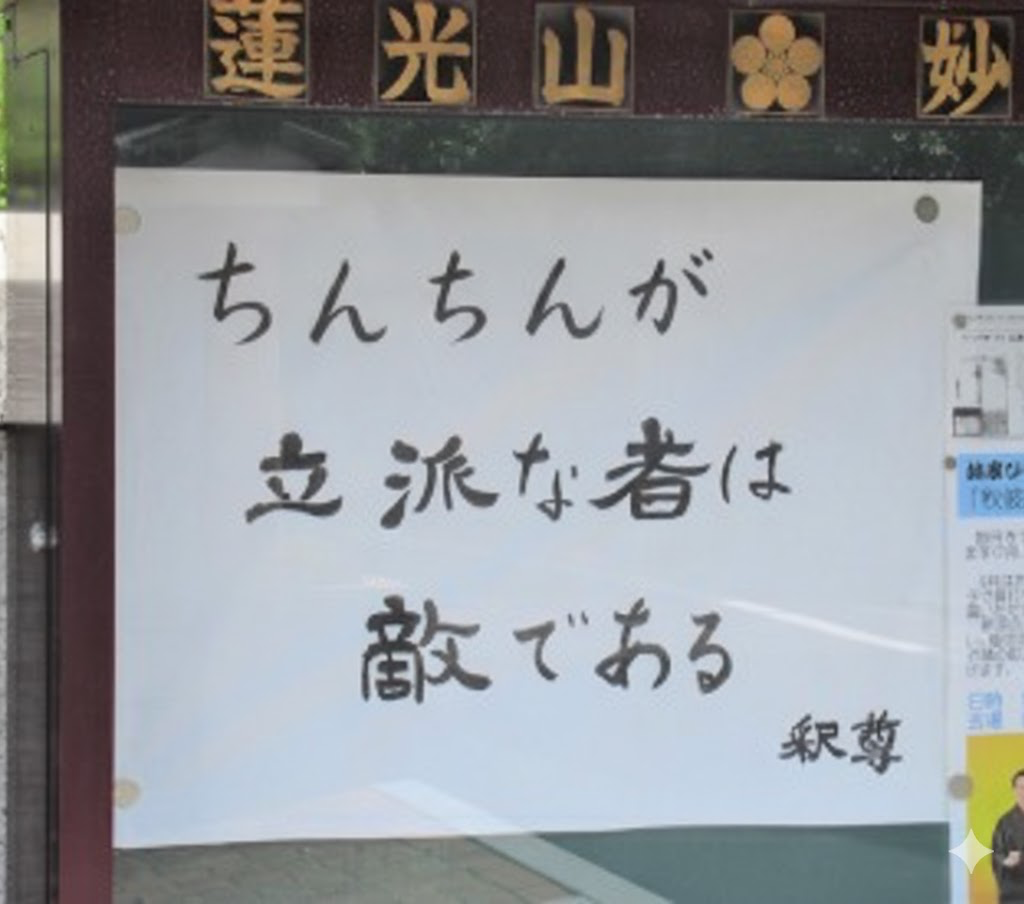 蓮光山 妙
ちんちんが
立派な者は
敵である
釈尊
日時